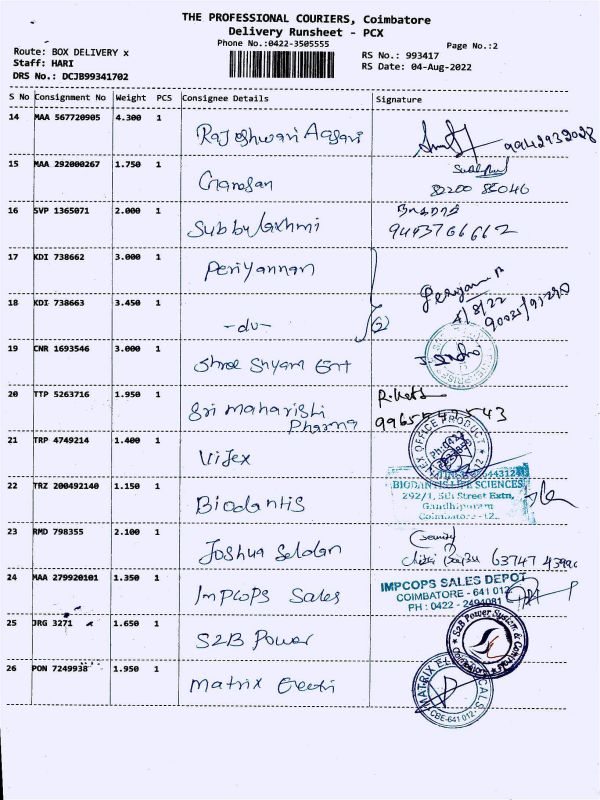 THE PROFESSIONAL COURIERS, Coimbatore
Delivery Runsheet - PCX
Phone No.:0422-3505555
Page No.:2
Route: BOX DELIVERY x
Staff: HARI
DRS No.: DCJB99341702
RS No.: 993417
RS Date: 04-Aug-2022
S No Consignment No Weight PCS Consignee Details Signature
14 MAA 567720905 4.300 1 Rajeshwari Aagavi 9942932028
15 MAA 292000267 1.750 1
82200 85046
16 SVP 1365071 2.000 1 Subbulaxhmi
9443766662
17 KDI 738662 3.000 1 Periyannan
4/8/22
18 KDI 738663 3.450 1 -do- (2)
19 CNR 1693546 3.000 1 Shree Shyam Ent
20 TTP 5263716 1.950 1 Sri Maharishi
Pharma
21 TRP 4749214 1.400 1 Vifex
22 TRZ 200492140 1.150 1 Biodantis
BIODANTIS LIFE SCIENCES
292/1, 5th Street Extn,
Gandhipuram
Coimbatore -12.
23 RMD 798355 2.100 1 Joshua Selolan
63747
24 MAA 279920101 1.350 1 Impcops Sales
IMPCOPS SALES DEPOT
COIMBATORE - 641 012
PH : 0422 - 2494081
25 JRG 3271 1.650 1 S2B Power
S2B Power System &
26 PON 7249938 1.950 1 Matrix Electri
MATRIX
CBE-641 012